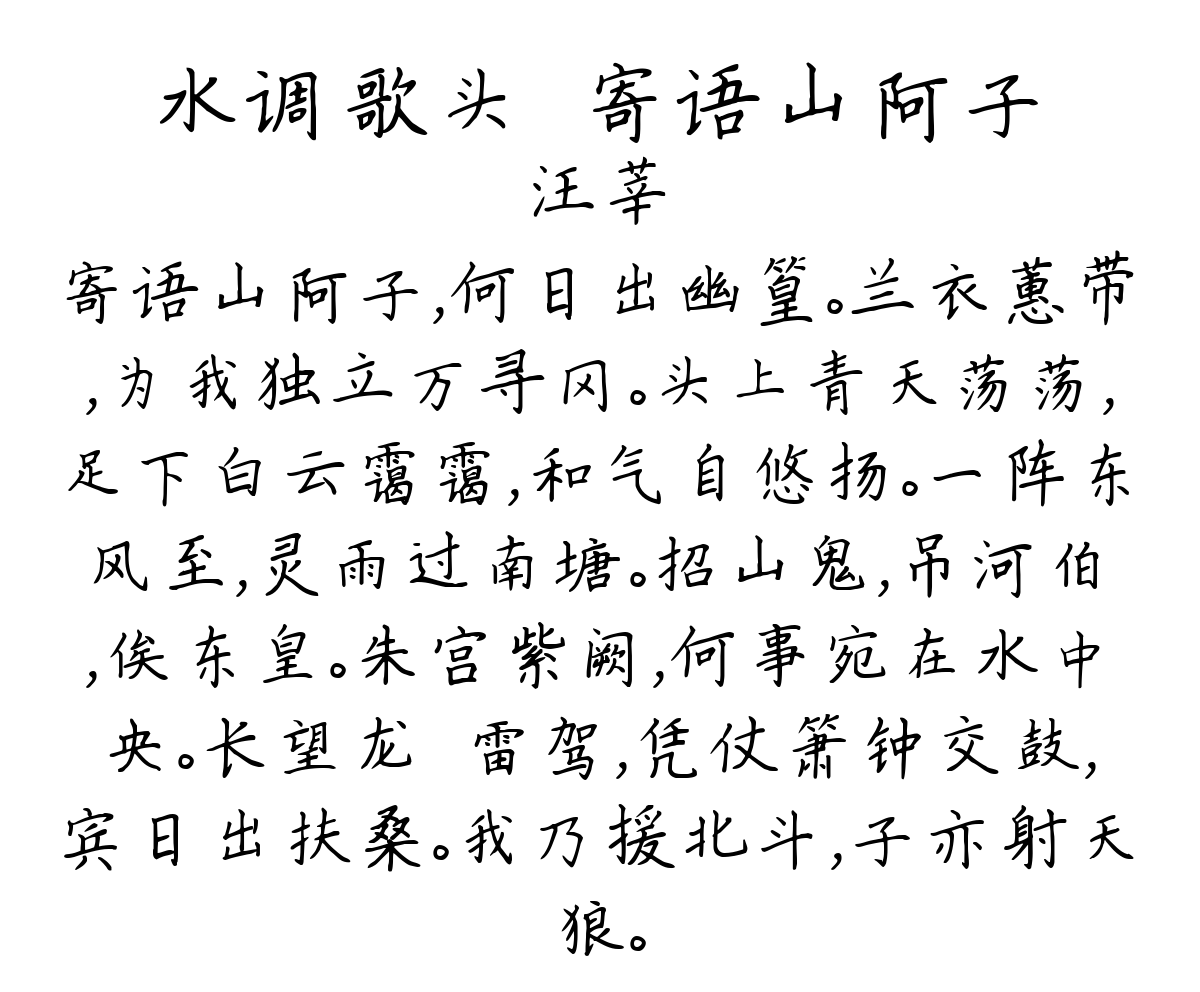 水调歌头 寄语山阿子
汪莘
寄语山阿子,何日出幽篁。兰衣蕙带
,为我独立万寻冈。头上青天荡荡,
足下白云霭霭,和气自悠扬。一阵东
风至,灵雨过南塘。招山鬼,吊河伯
,俟东皇。朱宫紫阙,何事宛在水中
央。长望龙 雷驾,凭仗箫钟交鼓,
宾日出扶桑。我乃援北斗,子亦射天
狼。